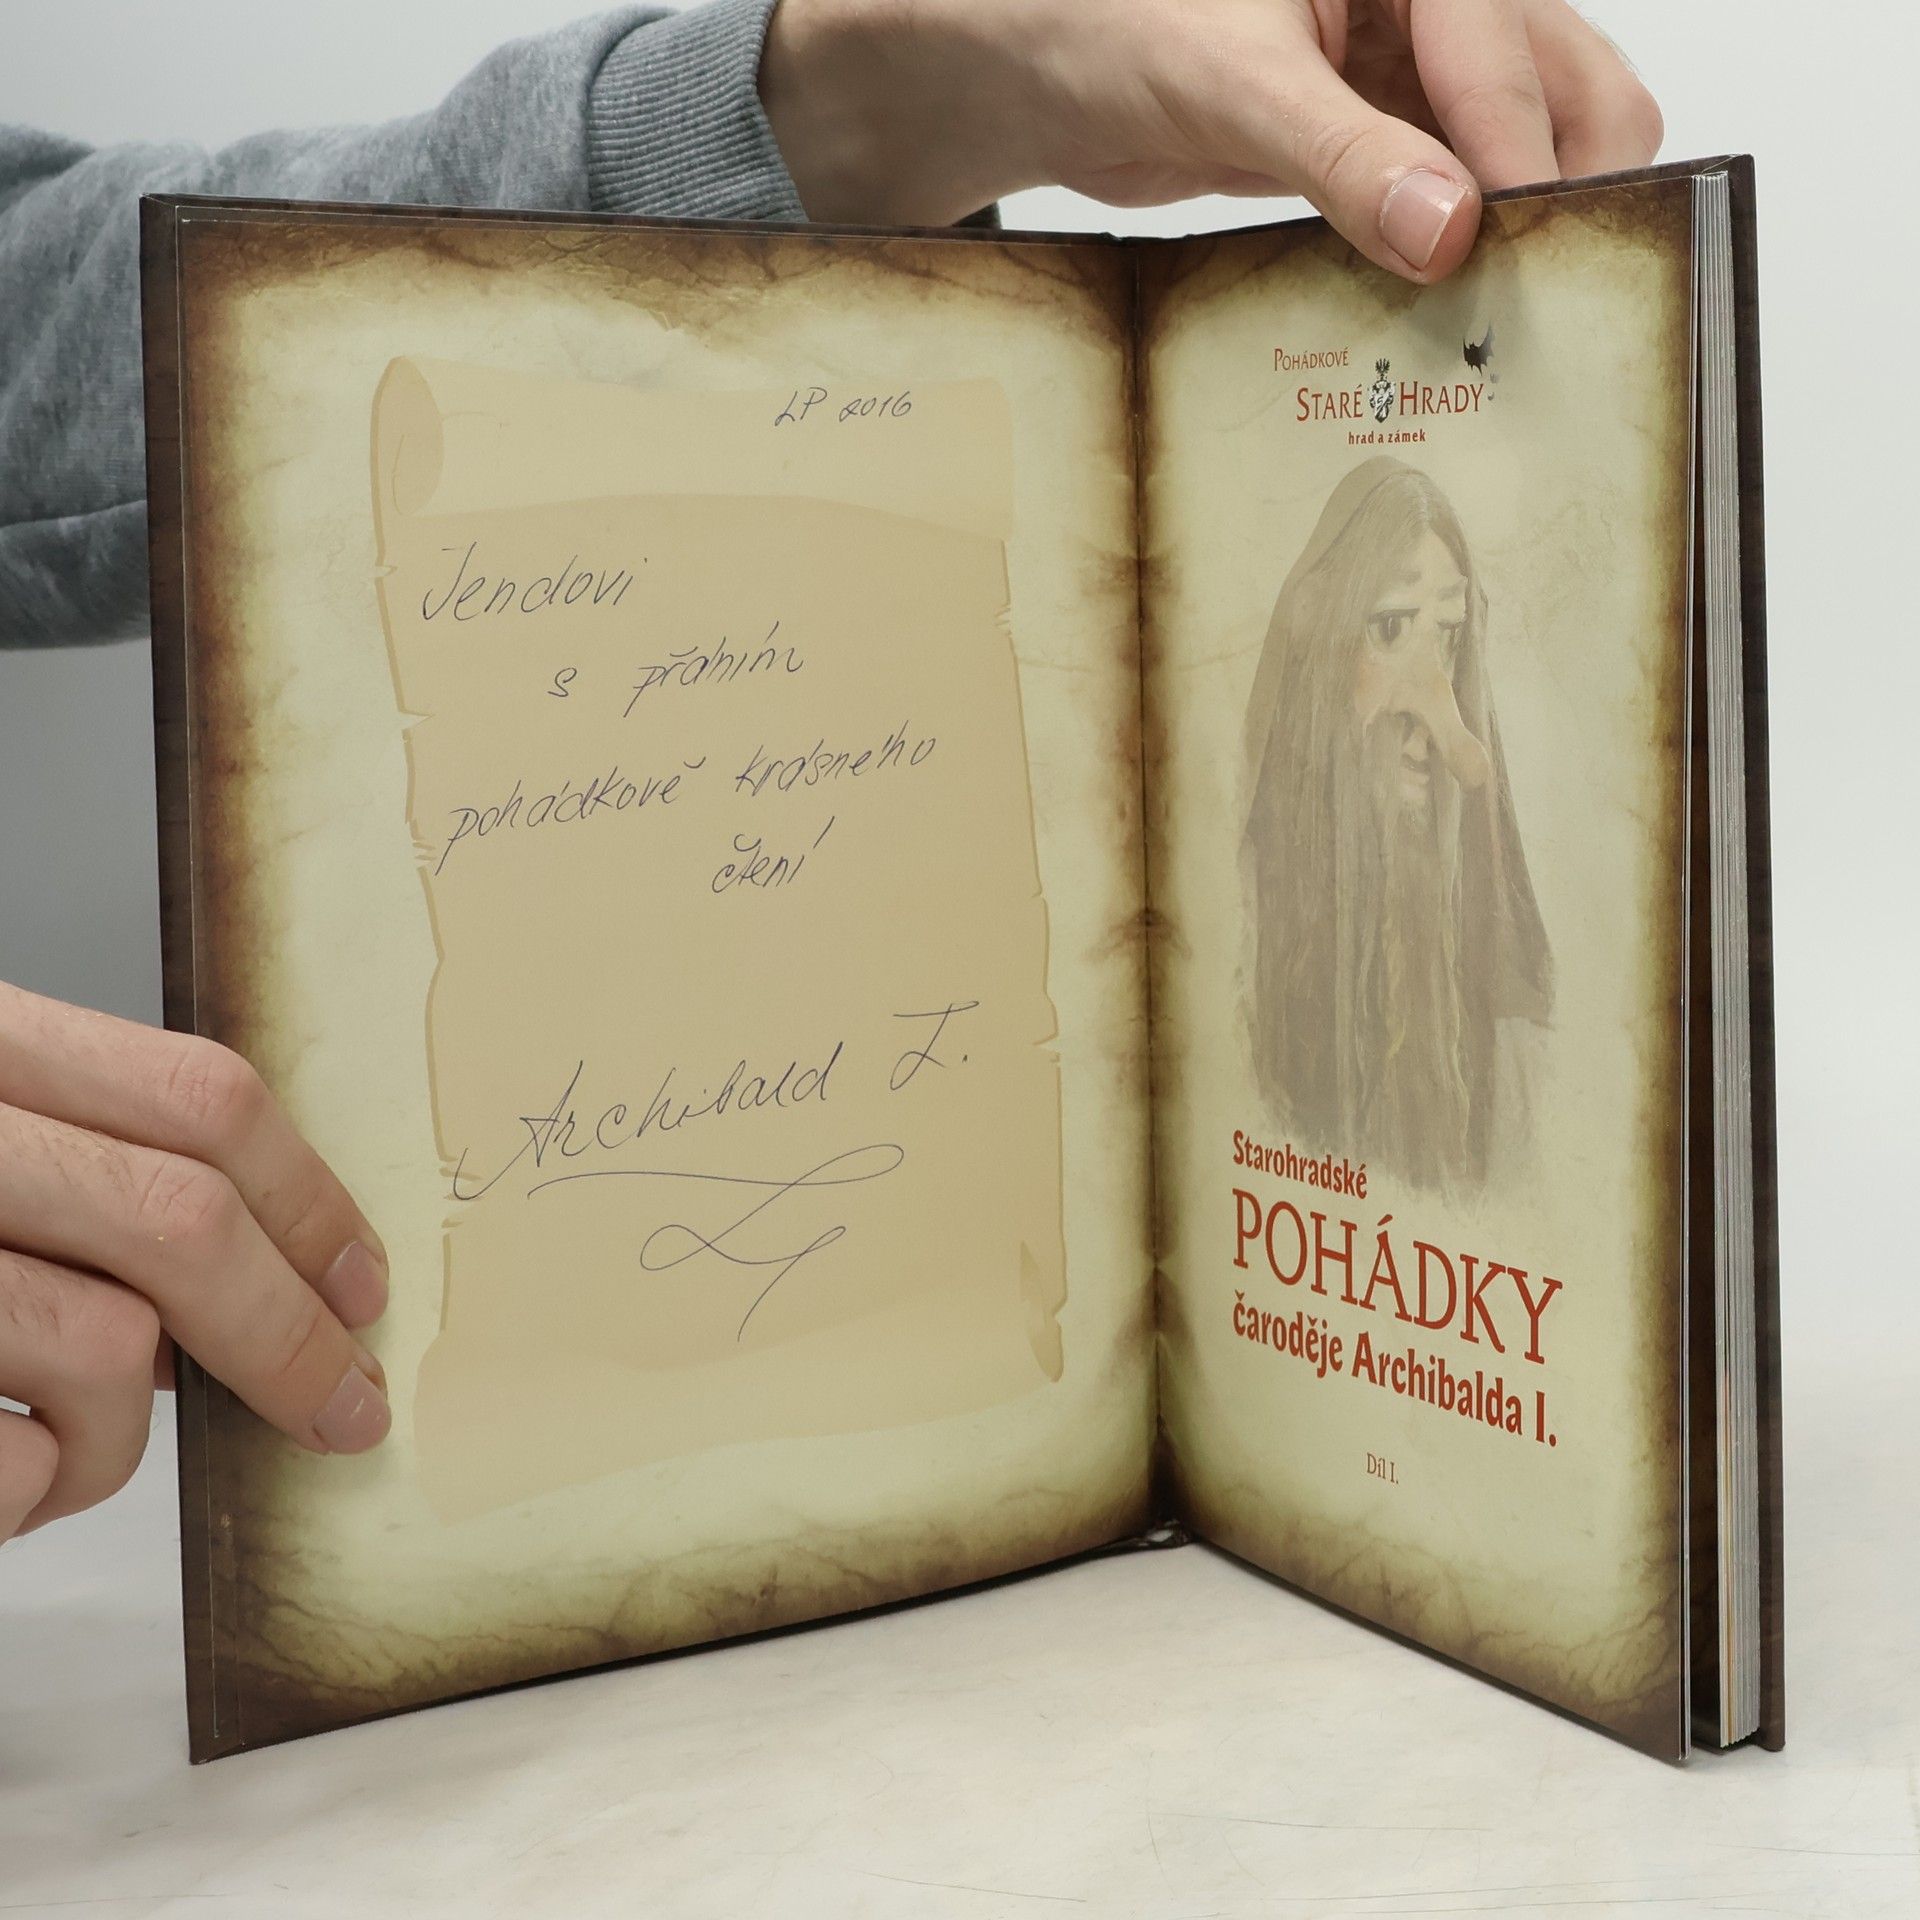 LP 2016
Jendovi
s přáním
pohádkově krásného
čtení
Archibald I.
POHÁDKOVÉ
STARÉ HRADY
hrad a zámek
Starohradské
POHÁDKY
čaroděje Archibalda I.
Díl I.